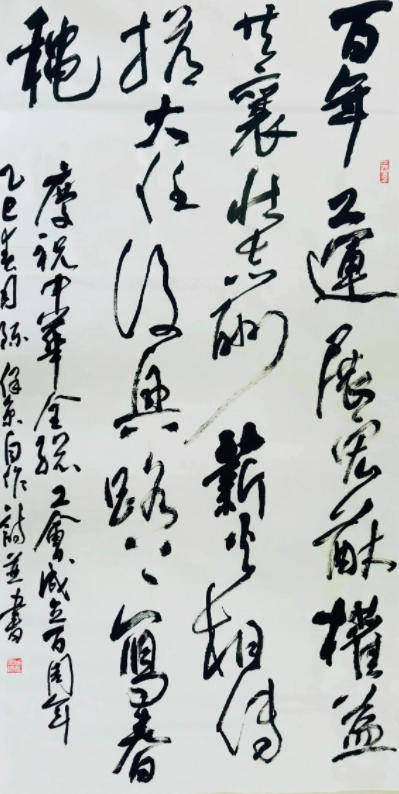 百年工運展宏猷權益
共襄壯志酬薪火相傳
擔大任復興路上寫春
穐
慶祝中華全總工會成立百周年
乙巳春月自作詩並書